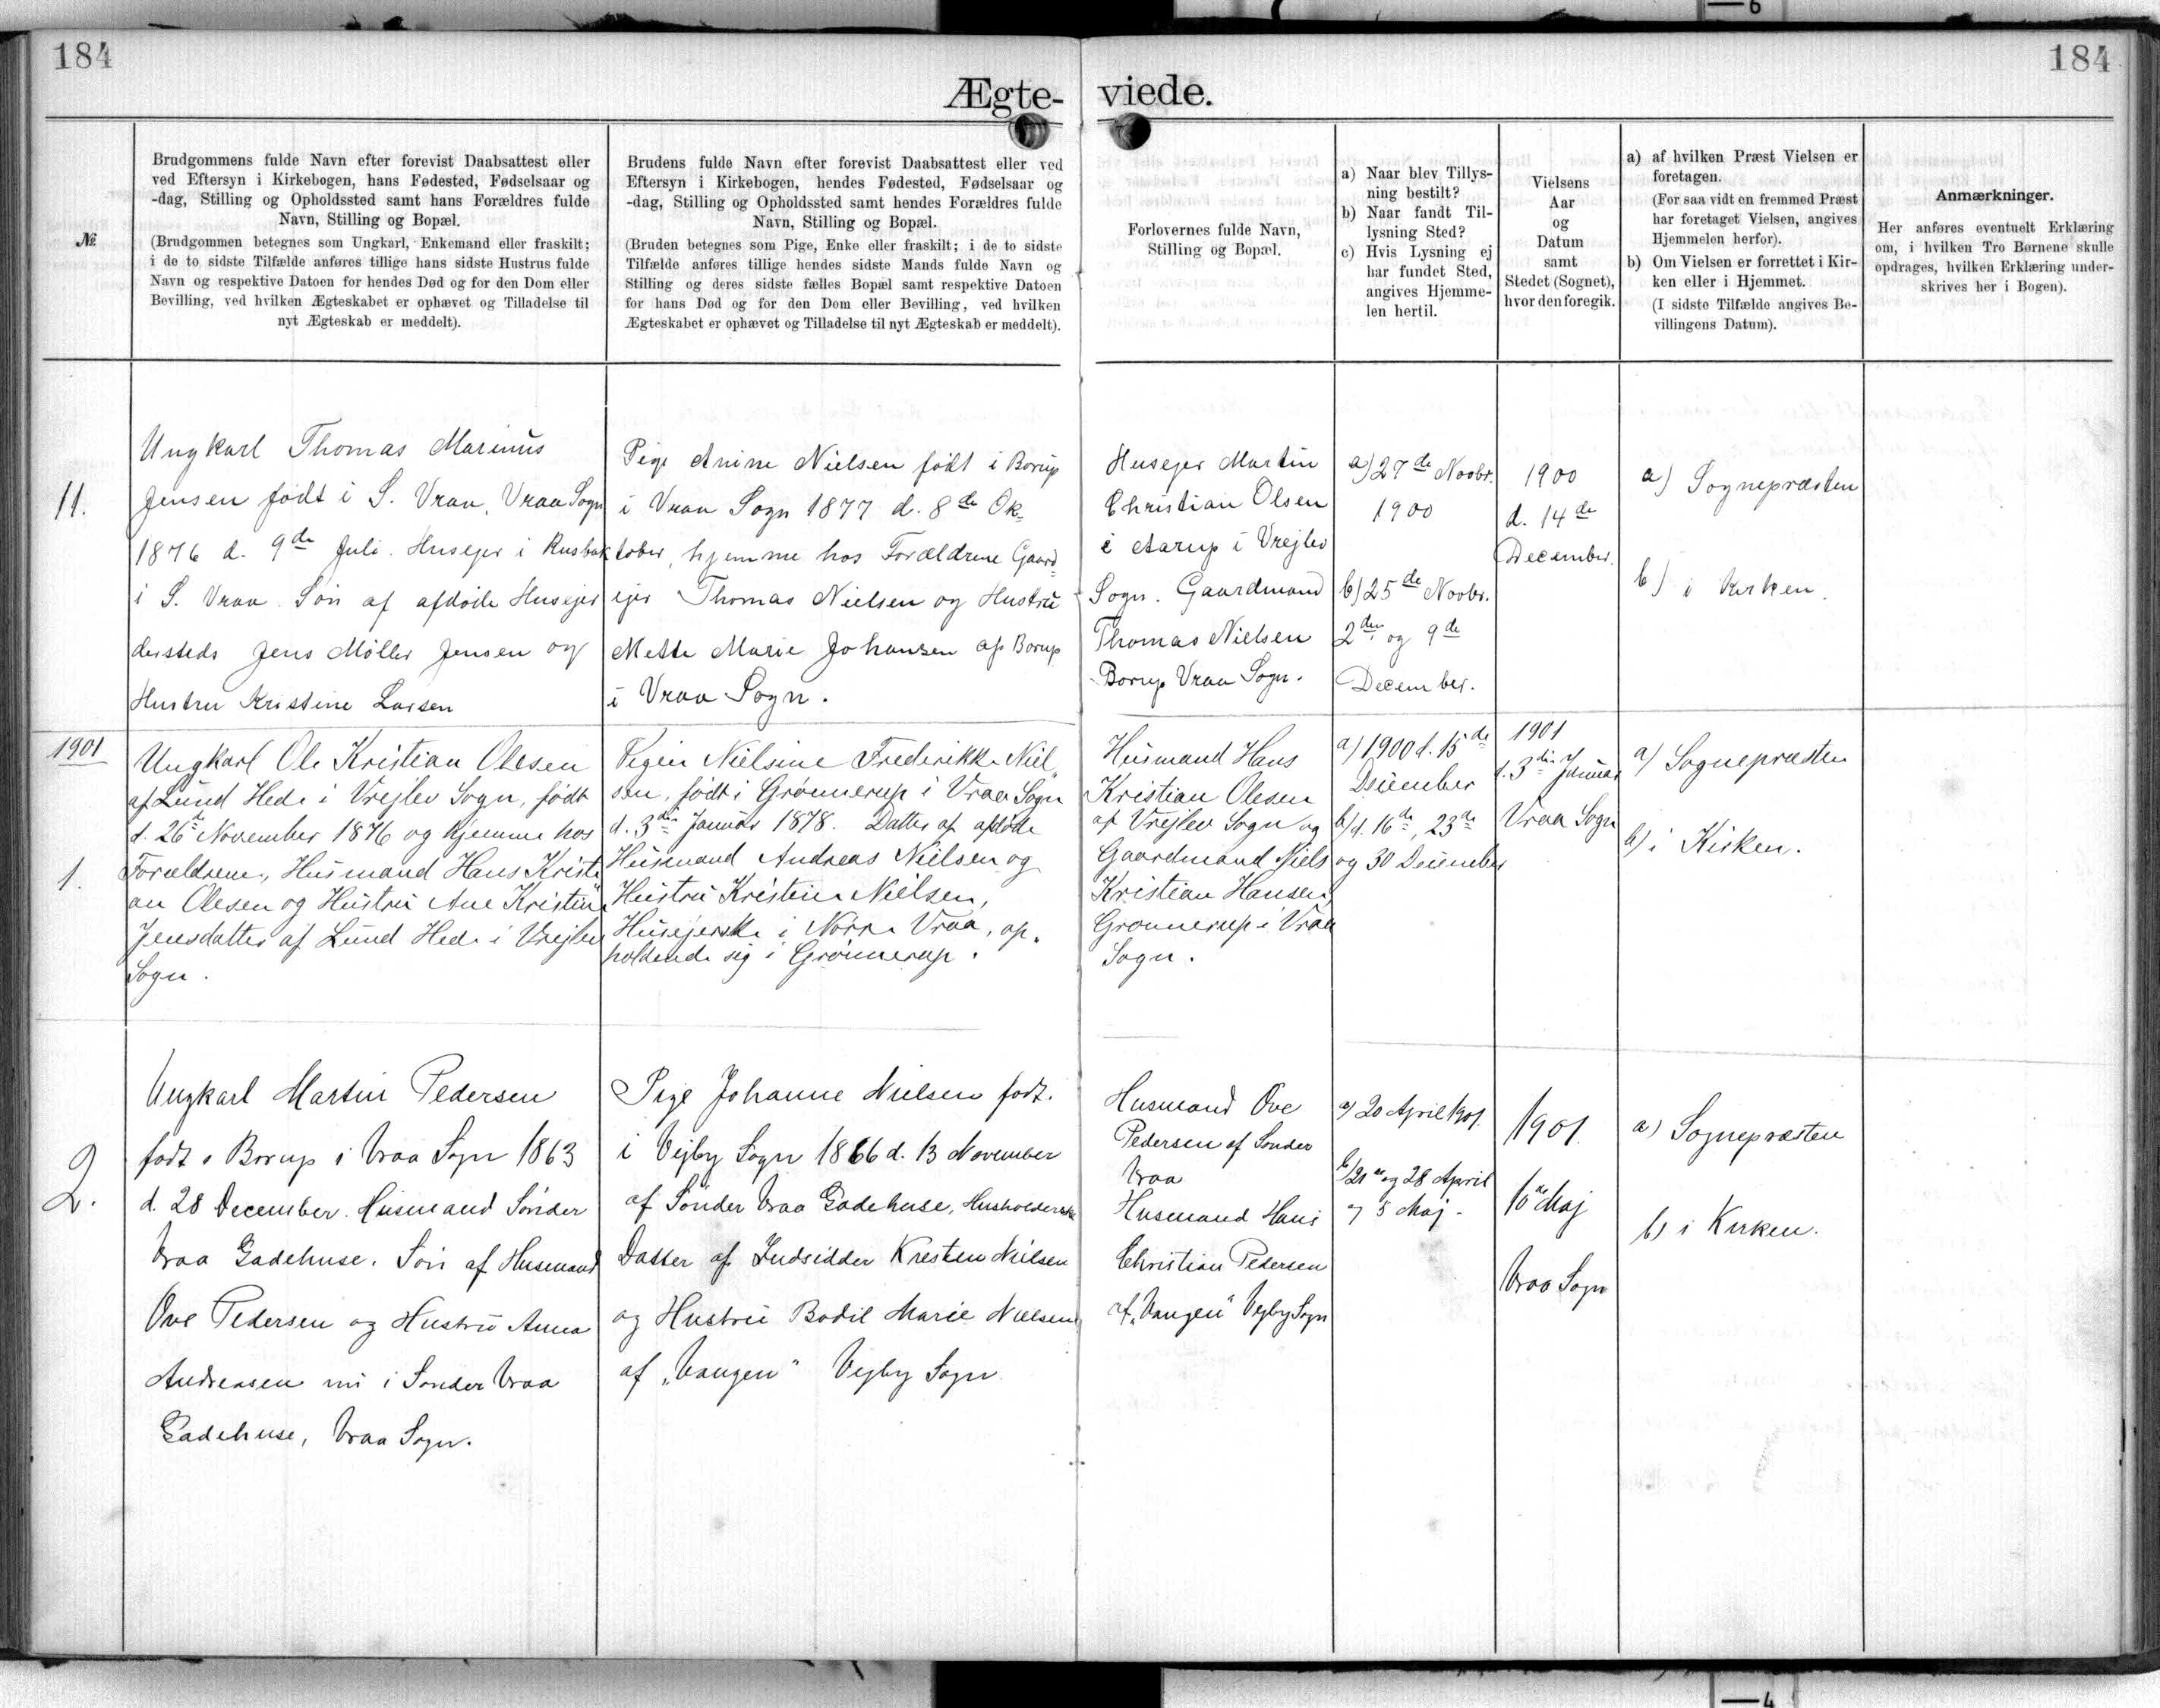 6
184
184
Ægte-
viede.
№
Brudgommens fulde Navn efter forevist Daabsattest eller
ved Eftersyn i Kirkebogen, hans Fødested, Fødselsaar og
-dag, Stilling og Opholdssted samt hans Forældres fulde
Navn, Stilling og Bopæl.
(Brudgommen betegnes som Ungkarl, Enkemand eller fraskilt;
i de to sidste Tilfælde anføres tillige hans sidste Hustrus fulde
Navn og respektive Datoen for hendes Død og for den Dom eller
Bevilling, ved hvilken Ægteskabet er ophævet og Tilladelse til
nyt Ægteskab er meddelt).
Brudens fulde Navn efter forevist Daabsattest eller ved
Eftersyn i Kirkebogen, hendes Fødested, Fødselsaar og
-dag, Stilling og Opholdssted samt hendes Forældres fulde
Navn, Stilling og Bopæl.
(Bruden betegnes som Pige, Enke eller fraskilt; i de to sidste
Tilfælde anføres tillige hendes sidste Mands fulde Navn og
Stilling og deres sidste fælles Bopæl samt respektive Datoen
for hans Død og for den Dom eller Bevilling, ved hvilken
Ægteskabet er ophævet og Tilladelse til nyt Ægteskab er meddelt).
Forlovernes fulde Navn,
Stilling og Bopæl.
a) Naar blev Tillys-
ning bestilt?
b) Naar fandt Til-
lysning Sted?
c) Hvis Lysning ej
har fundet Sted,
angives Hjemme-
len hertil.
Vielsens
Aar
og
Datum
samt
Stedet (Sognet),
hvor den foregik.
a) af hvilken Præst Vielsen er
foretagen.
(For saa vidt en fremmed Præst
har foretaget Vielsen, angives
Hjemmelen herfor).
b) Om Vielsen er forrettet i Kir-
ken eller i Hjemmet.
(I sidste Tilfælde angives Be-
villingens Datum).
Anmærkninger.
Her anføres eventuelt Erklæring
om, i hvilken Tro Børnene skulle
opdrages, hvilken Erklæring under-
skrives her i Bogen).
11.
Ungkarl Thomas Marinus
Jensen født i S. Vraa, Vraa Sogn
1876 d. 9de Juli. Husejer i
i S. Vraa. Søn af afdøde Husejer
dersteds Jens Møller Jensen og
Hustru Kristine Larsen
Pige Anine Nielsen født i Borup
i Vraa Sogn 1877 d. 8de Ok-
tober, hjemme hos Forældrene Gaard-
ejer Thomas Nielsen og Hustru
Mette Marie Johansen af Borup
i Vraa Sogn.
Husejer Martin
Christian Olsen
i Aarup i Vrejlev
Sogn. Gaardmand
Thomas Nielsen
Borup Vraa Sogn.
a) 27de Novbr.
1900
b) 25de Novbr.
2den og 9de
December.
1900
d. 14de
December.
a) Sognepræsten
b) i Kirken.
1901
1.
Ungkarl Ole Kristian Olesen
af Lund Hede i Vrejlev Sogn, født
d. 26de November 1876 og hjemme hos
Forældrene, Husmand Hans Kristi
an Olesen og Hustru Ane Kristine
Jensdatter af Lund Hede i Vrejlev
Sogn.
Pigen Nielsine Frederikke Niel„
sen, født i Grønnerup i Vraa Sogn
d. 3die Januar 1878. Datter af afdøde
Husmand Andreas Nielsen og
Hustru Kristine Nielsen,
Husejerske i Nørre Vraa, op„
holdende sig i Grønnerup.
Husmand Hans
Kristian Olesen
af Vrejlev Sogn og
Gaardmand Niels
Kristian Hansen,
Grønnerup i Vraa
Sogn.
a) 1900 d. 15de
December
b) d. 16de, 23de
og 30 December
1901
d. 3die Januar
Vraa Sogn
a) Sognepræsten
b) i Kirken.
2.
Ungkarl Martin Pedersen
født i Borup i Vraa Sogn 1863
d. 28 December. Husmand Sønder
Vraa Gadehuse. Søn af Husmand
Ove Pedersen og Hustru Anna
Andreasen nu i Sønder Vraa
Gadehuse, Vraa Sogn.
Pige Johanne Nielsen født.
i Vejby Sogn 1866 d. 13 November
af Sønder Vraa Gadehuse, Husholderske
Datter af Indsidder Kresten Nielsen
og Hustru Bodil Marie Nielsen
af „Vangen" Vejby Sogn.
Husmand Ove
Pedersen af Sønder
Vraa
Husmand Hans
Christian Pedersen
af „Vangen" Vejby Sogn
a) 20 April 1901.
b) 21de og 28 April
og 5 Maj.
1901.
10de Maj
Vraa Sogn
a) Sognepræsten
b) i Kirken.
4